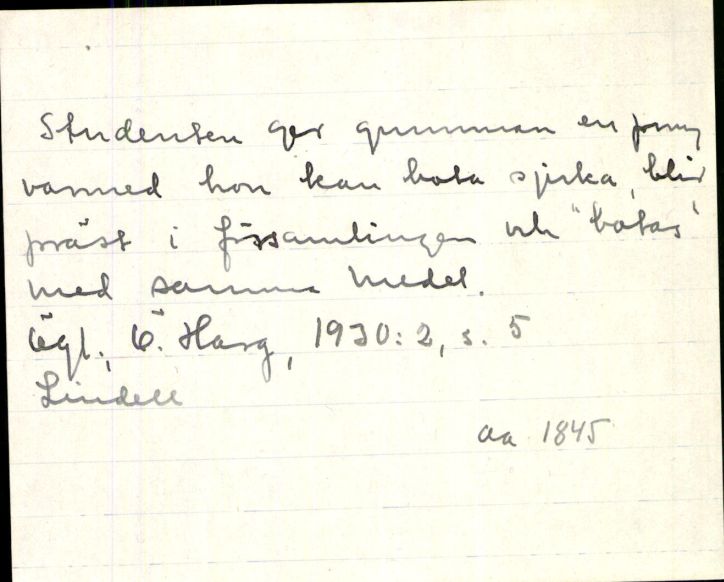 Studenten ger gumman en pung
varmed hon kan bota sjuka, blir
präst i församlingen och "botas"
med samma medel.
Ögl., Ö. Harg, 1930:2, s. 5
Lindell
aa 1845